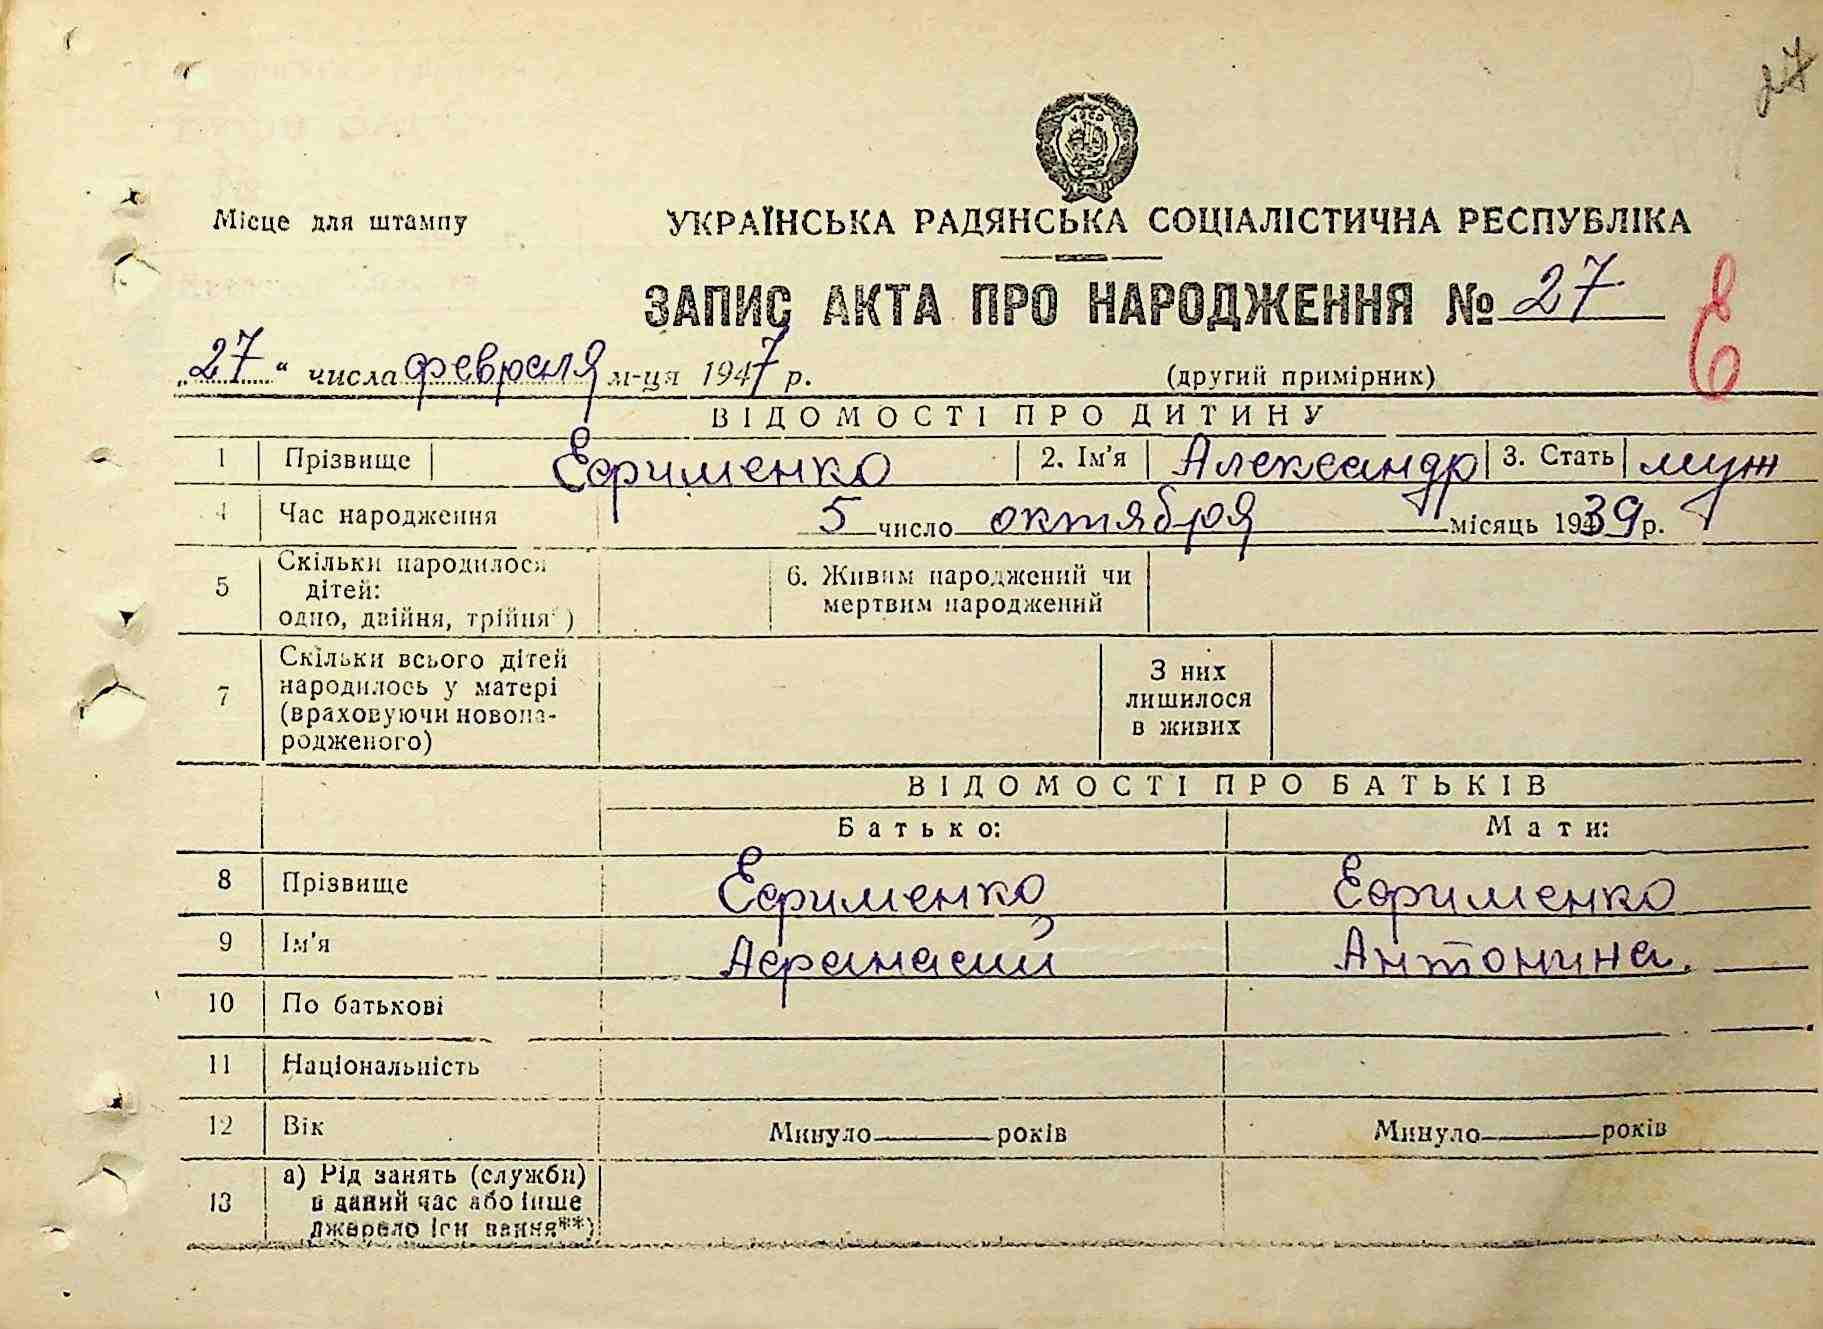 27
Місце для штампу
УКРАЇНСЬКА РАДЯНСЬКА СОЦІАЛІСТИЧНА РЕСПУБЛІКА
ЗАПИС АКТА ПРО НАРОДЖЕННЯ № 27
Е
„27“ числа февраля м-ця 1947 р. (другий примірник)
ВІДОМОСТІ ПРО ДИТИНУ
1 Прізвище Ефрименко 2. Ім'я Александр 3. Стать муж
4 Час народження 5 число октября місяць 1939 р.
5 Скільки народилося
дітей:
одно, двійня, трійня*)
6. Живим народжений чи
мертвим народжений
7 Скільки всього дітей
народилось у матері
(враховуючи новона-
родженого)
З них
лишилося
в живих
ВІДОМОСТІ ПРО БАТЬКІВ
Батько: Мати:
8 Прізвище Ефрименко Ефрименко
9 Ім'я Афанасий Антонина.
10 По батькові
11 Національність
12 Вік Минуло років Минуло років
13 а) Рід занять (служби)
в даний час або інше
джерело існування**)